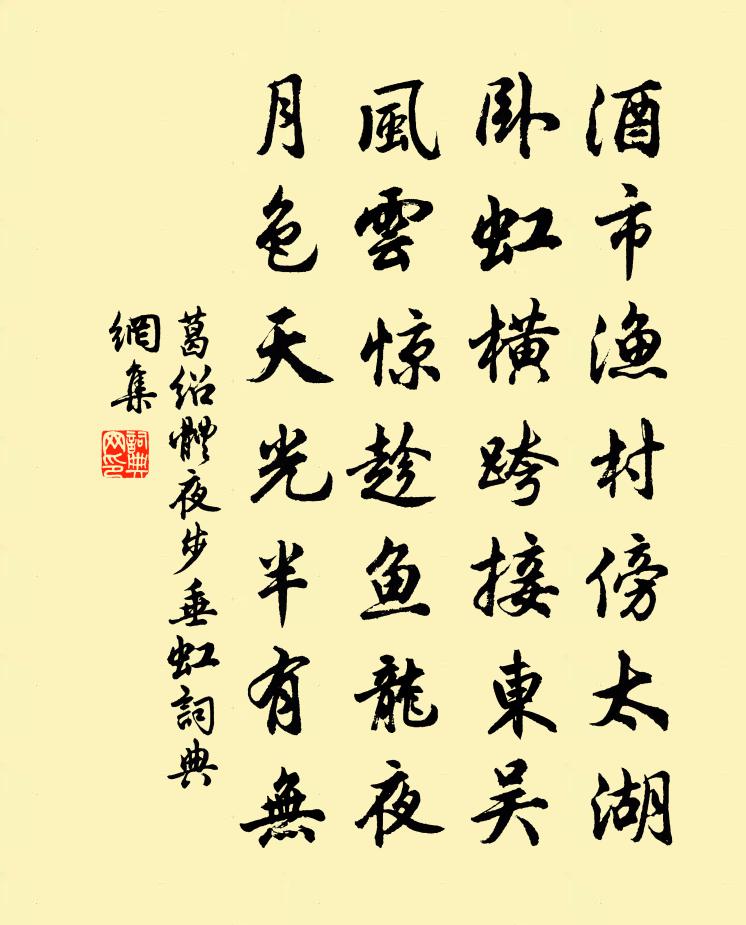 酒市渔村傍太湖
卧虹橫跨接東吴
風雲惊趁鱼龍夜
月色天光半有無
葛绍體夜步垂虹詞典
網集
詞典
网印